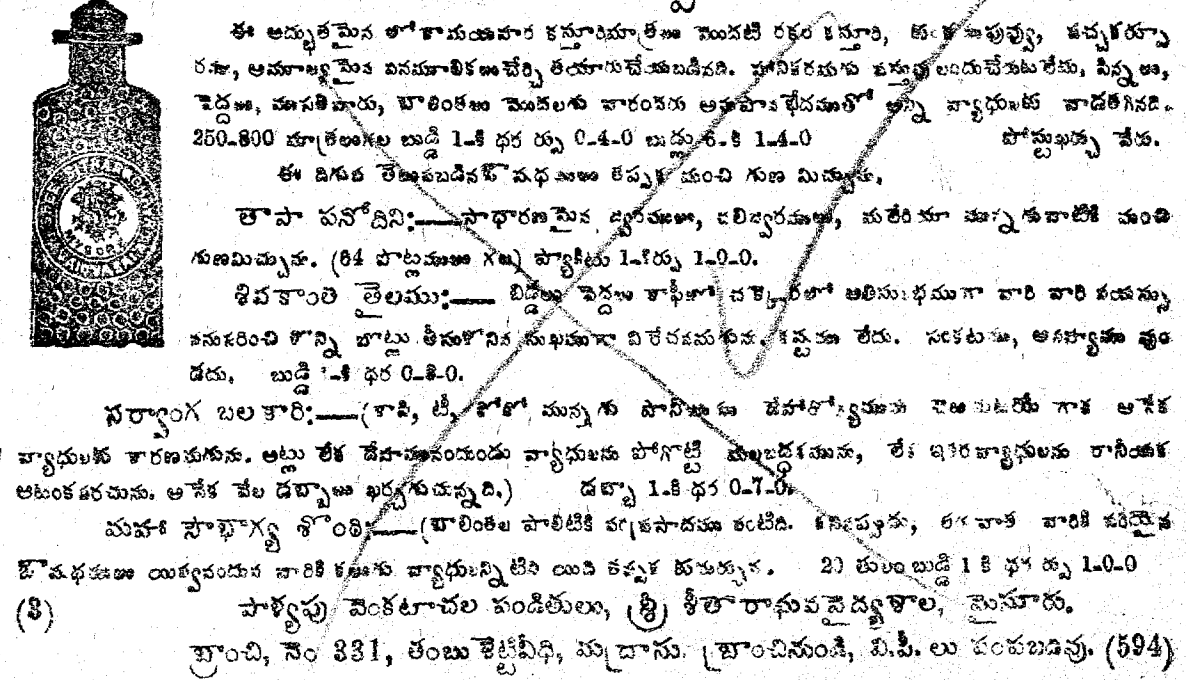 ఈ అద్భుతమైన లోకామయహర కస్తూరిమాత్రలు మొదటి రకం కస్తూరి, కుంకుమపువ్వు, పచ్చకర్పూ
రము, అమూల్యమైన వనమూలికలుచేర్చి తయారుచేయబడినది. హానికరమగు వస్తువులందుచేరుటలేదు, పిన్నలు,
పెద్దలు, ముసలివారు, బాలింతలు మొదలగు వారందరు అనుపానభేదముతో అన్ని వ్యాధులకు వాడతగినది.
250-300 మాత్రలుగల బుడ్డి 1-కి ధర ర్పు 0-4-0 బుడ్లు 6-కి 1-4-0 పోస్టుఖర్చు వేరు.
ఈ దిగువ తెలుపబడిన ఔషధములు తప్పక మంచి గుణ మిచ్చును.
తాపా పనోదిని:—సాధారణమైన జ్వరములు, చలిజ్వరములు, మలేరియా మున్నగువాటికి మంచి
గుణమిచ్చును. (64 పొట్లములు గల) ప్యాకెటు 1-కిర్పు 1-0-0.
శివకాంతి తైలము:— బిడ్డలు పెద్దలు కాఫీలో చక్కెరలో అతిసులభముగా వారి వారి వయస్సు
ననుకరించి కొన్ని బొట్లు తీసుకొనిన సుఖముగా విరేచనమగును. కష్టము లేదు. సంకటము, అసహ్యము వుం
డదు. బుడ్డి 1-కి ధర 0-8-0.
సర్వాంగ బలకారి:—(కాఫి, టీ, కోకో మున్నగు పానీయములు దేహారోగ్యమును చెఱుచుటయే గాక అనేక
వ్యాధులకు కారణమగును. అట్లు లేక దేహమునందుండు వ్యాధులను పోగొట్టి మలబద్ధకమును, లేక ఇతరవ్యాధులను రానీయక
ఆటంకపరచును. అనేక వేల డబ్బాలు ఖర్చగుచున్నది.) డబ్బా 1-కి ధర 0-7-0.
మహా సౌభాగ్య శొంఠి:—(బాలింతల పాలిటికి వరప్రసాదము వంటిది. కనినప్పుడు, తరువాత వారికి సరియైన
ఔషధములు యివ్వనందున వారికి కలుగు వ్యాధులన్నిటిని యిది తప్పక కుదుర్చును. 20 తులం బుడ్డి 1 కి ధర ర్పు 1-0-0
(3) పాళ్యపు వెంకటాచల పండితులు, (శ్రీ) శీతారాఘవవైద్యశాల, మైసూరు.
బ్రాంచి, నెం 331, తంబు శెట్టివీధి, మద్రాసు. బ్రాంచినుండి, వి.పీ. లు పంపబడవు. (594)